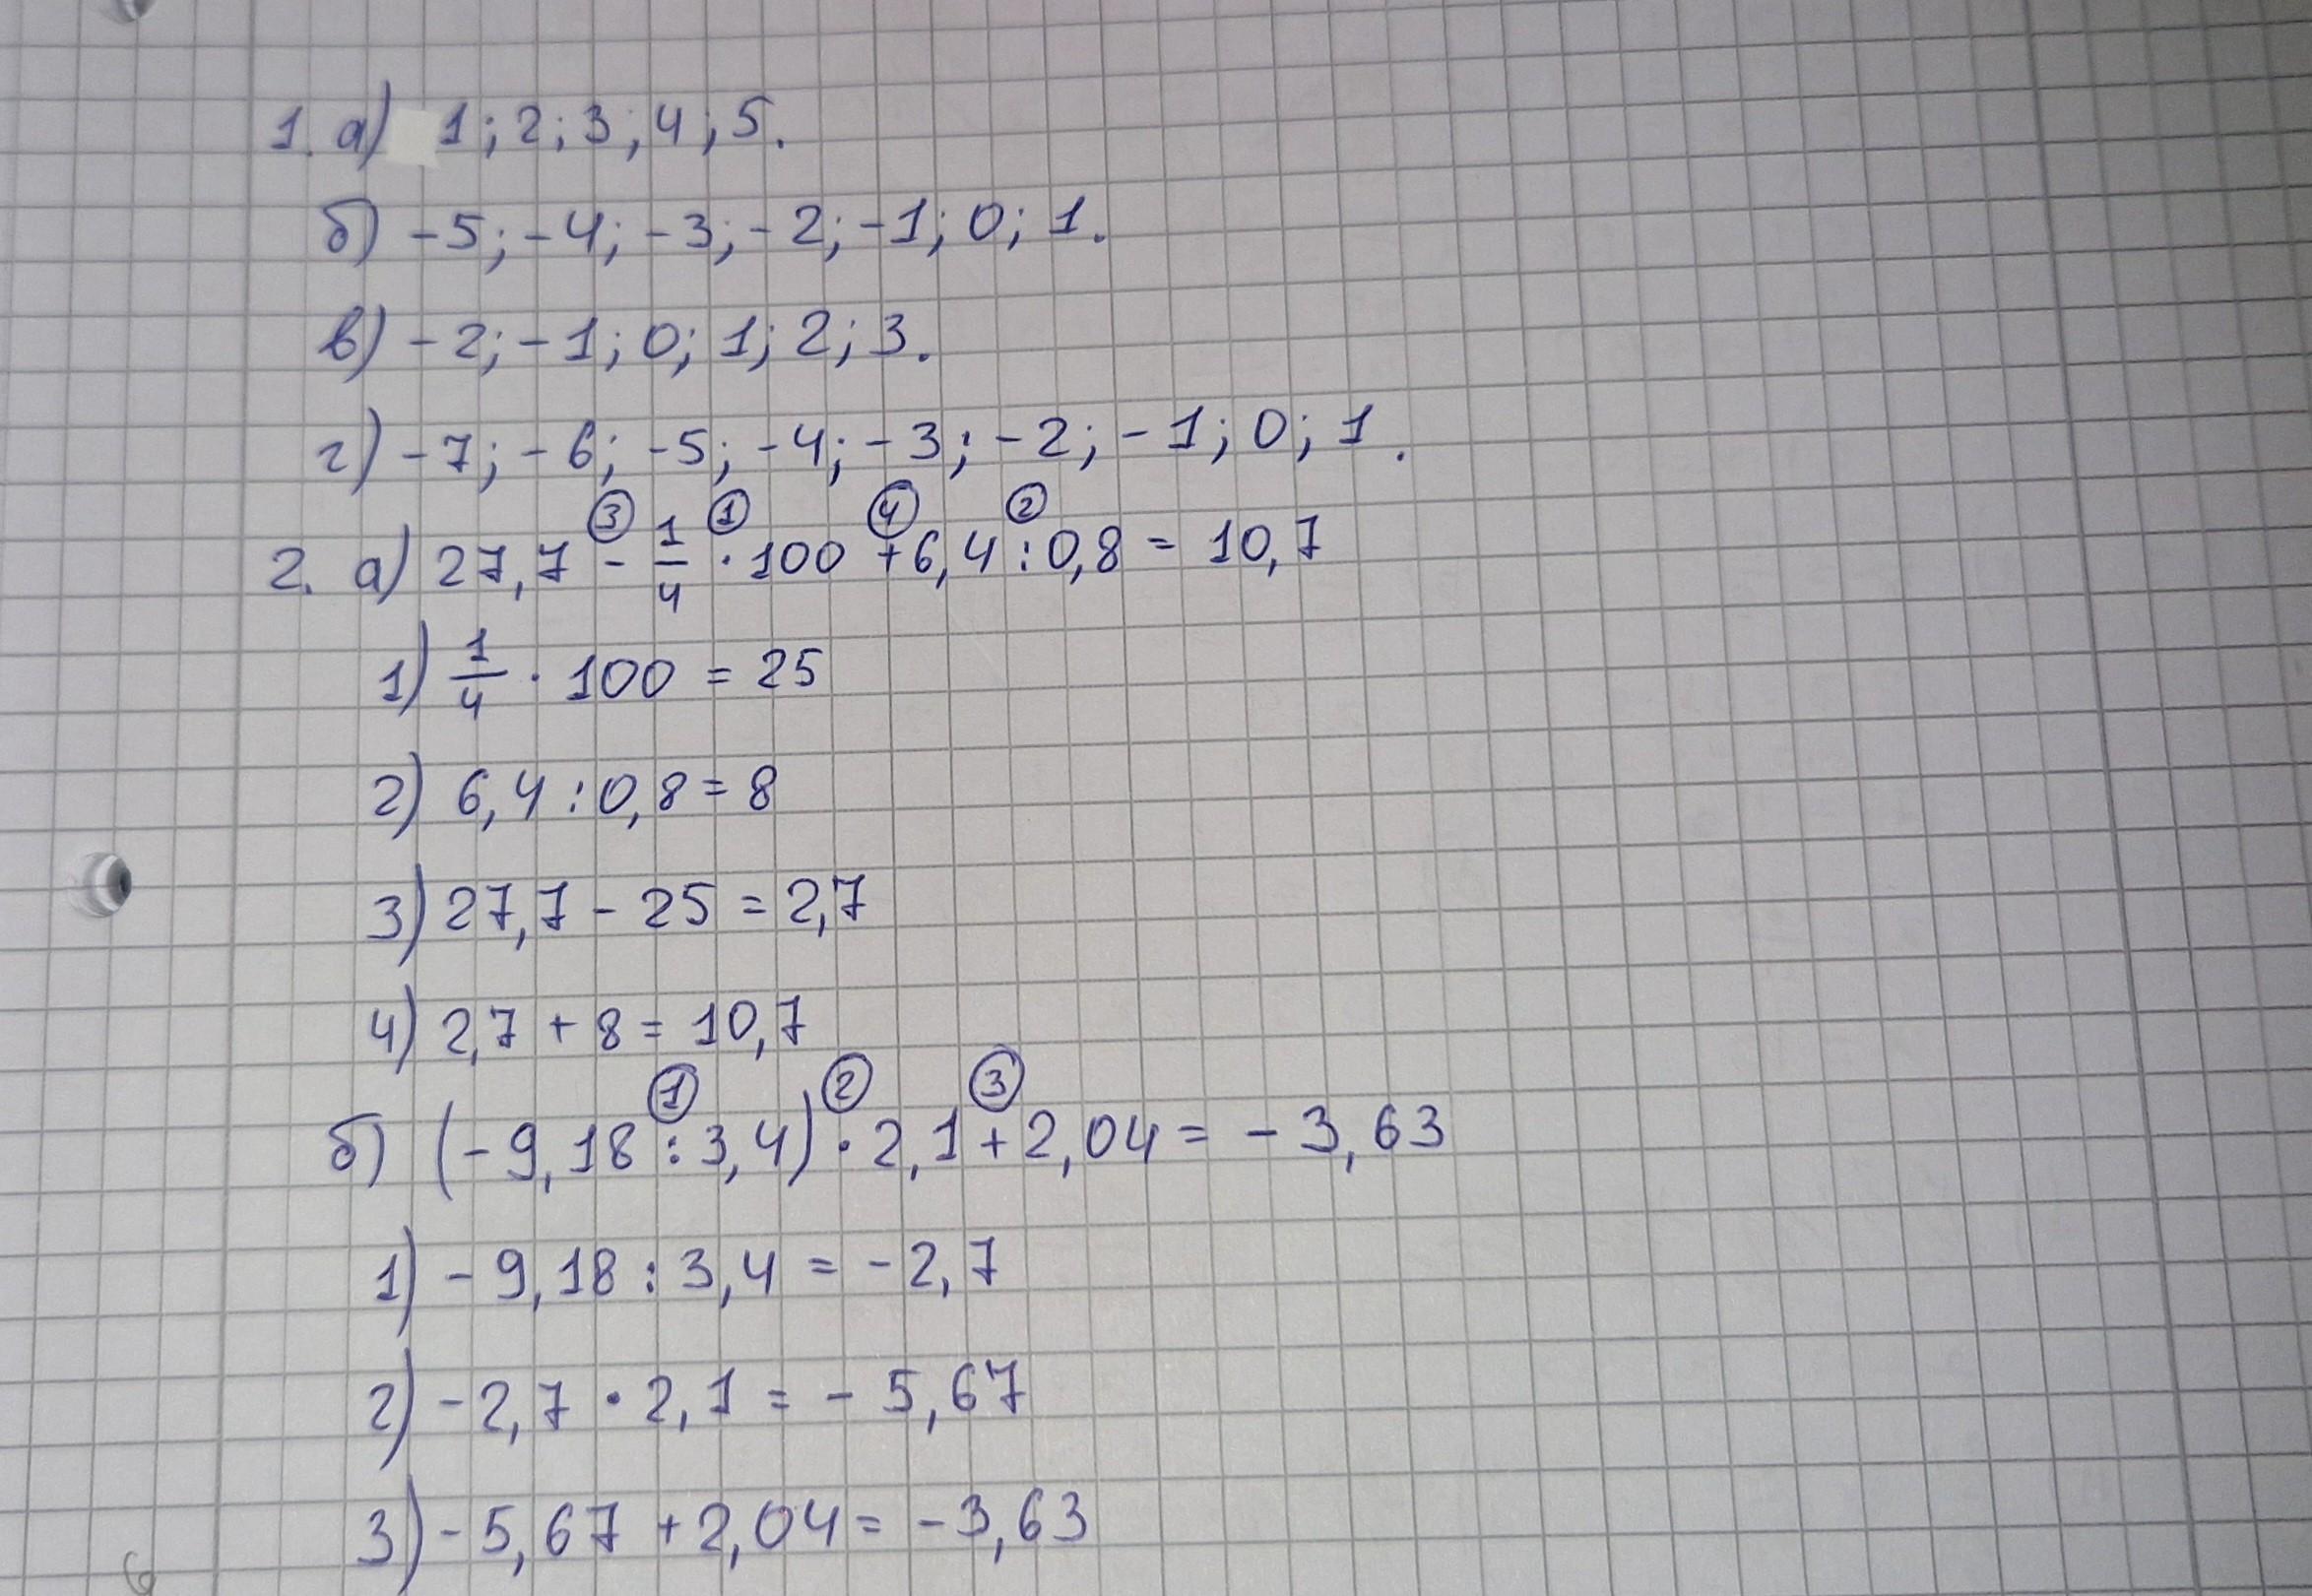 1. а) 1; 2; 3; 4; 5.
б) -5; -4; -3; -2; -1; 0; 1.
в) -2; -1; 0; 1; 2; 3.
г) -7; -6; -5; -4; -3; -2; -1; 0; 1.
③ ① ④ ②
2. а) 27,7 - 1/4 · 100 + 6,4 : 0,8 = 10,7
1) 1/4 · 100 = 25
2) 6,4 : 0,8 = 8
3) 27,7 - 25 = 2,7
4) 2,7 + 8 = 10,7
① ② ③
б) (-9,18 : 3,4) · 2,1 + 2,04 = -3,63
1) -9,18 : 3,4 = -2,7
2) -2,7 · 2,1 = -5,67
3) -5,67 + 2,04 = -3,63